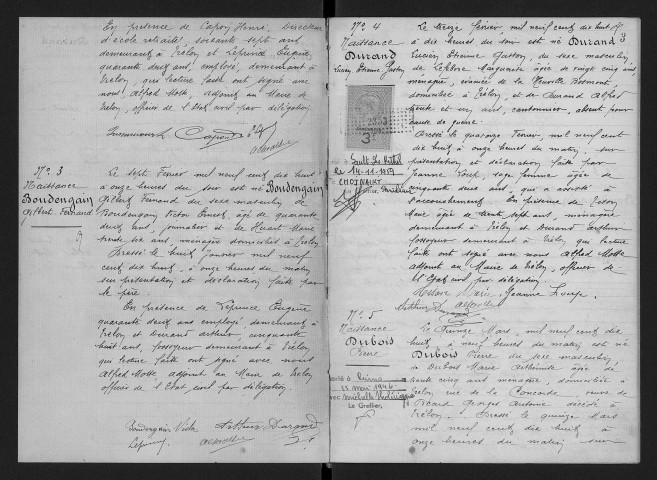 En présence de Capon Henri, Directeur
d'école retraité, soixante sept ans,
demeurant à Trélon et Leprince Eugène,
quarante deux ans, employé, demeurant à
Trélon, qui lecture faite ont signé avec
nous Alfred Motte, adjoint au Maire de
Trélon, officier de l'Etat civil par délégation.
Capon
N° 3
Naissance
Boudengain
Gilbert Fernand
Le sept Février mil neuf cent dix huit
à onze heures du soir est né Boudengain
Gilbert Fernand du sexe masculin, de
Boudengain Victor Ernest, âgé de quarante
deux ans, journalier et de Huart Marie
trente six ans, ménagère domiciliés à Trélon.
Dressé le huit Janvier mil neuf
cent dix huit, à onze heures du matin,
sur présentation et déclaration faite par
le père.
En présence de Leprince Eugène
quarante deux ans employé, demeurant à
Trélon et Durand Arthur, cinquante
huit ans, fossoyeur demeurant à Trélon
qui lecture faite ont signé avec nous
Alfred Motte adjoint au Maire de Trélon
officier de l'Etat civil par délégation.
Boudengain Victor Arthur Durand
N° 4
Naissance
Durand
Lucien Etienne Gaston
3
Le treize Février, mil neuf cent dix huit
à dix heures du soir est né Durand
Lucien Etienne Gaston, du sexe masculin,
de Lefebvre Marguerite âgée de vingt cinq ans,
ménagère, évacuée de La Neuville Bosmont
domiciliée à Trélon, et de Durand Alfred
trente et un ans, cantonnier, absent pour
cause de guerre.
Dressé le quatorze Février, mil neuf cent
dix huit à neuf heures du matin, sur
présentation et déclaration faite par
Jeanne Loup, sage femme âgée de
cinquante deux ans, qui a assisté à
l'accouchement. En présence de
Marie âgée de trente sept ans, ménagère
demeurant à Trélon et Durand Arthur
fossoyeur demeurant à Trélon qui lecture
faite ont signé avec nous Alfred Motte
adjoint au Maire de Trélon, officier de
l'Etat civil par délégation.
Marie Jeanne Loup
Arthur Durand
le 14-11-1959
N° 5
Naissance
Dubois
Pierre
Le Quinze Mars, mil neuf cent dix
huit, à neuf heures du matin, est né
Dubois Pierre du sexe masculin,
de Dubois Marie âgée de
trente cinq ans ménagère, domiciliée à
Trélon, rue de la Concorde, veuve de
Picard Georges Antoine décédé à
Trélon. Dressé le quinze Mars
mil neuf cent dix huit à
onze heures du matin sur
Reims
Mai 1946
avec Michelle
Le Greffier,